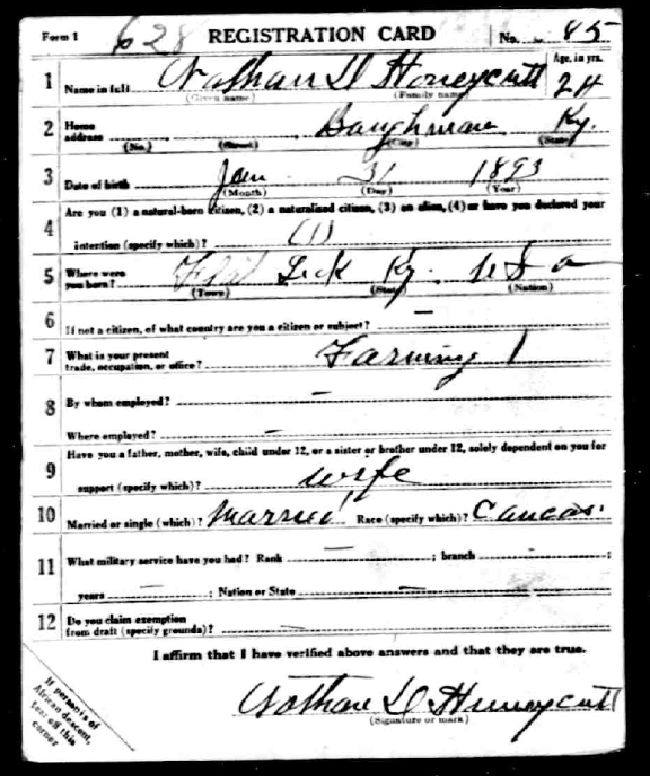 Form 1 628 REGISTRATION CARD No. 85
1 Name in full Nathan D Honeycutt Age, in yrs. 24
(Given name) (Family name)
2 Home address Baughman Ky.
(No.) (Street) (City) (State)
3 Date of birth Jan 31 1893
(Month) (Day) (Year)
Are you (1) a natural-born citizen, (2) a naturalized citizen, (3) an alien, (4) or have you declared your
4 intention (specify which)? (1)
5 Where were you born? Flat Lick Ky. U S a
(Town) (State) (Nation)
6 If not a citizen, of what country are you a citizen or subject? —
7 What is your present trade, occupation, or office? Farming 1
8 By whom employed? —
Where employed? —
9 Have you a father, mother, wife, child under 12, or a sister or brother under 12, solely dependent on you for
support (specify which)? wife
10 Married or single (which)? Married Race (specify which)? Caucas.
11 What military service have you had? Rank — ; branch - ;
years — ; Nation or State —
12 Do you claim exemption from draft (specify grounds)? —
I affirm that I have verified above answers and that they are true.
Nathan D Huneycutt
(Signature or mark)
If person is of
African descent,
tear off this
corner